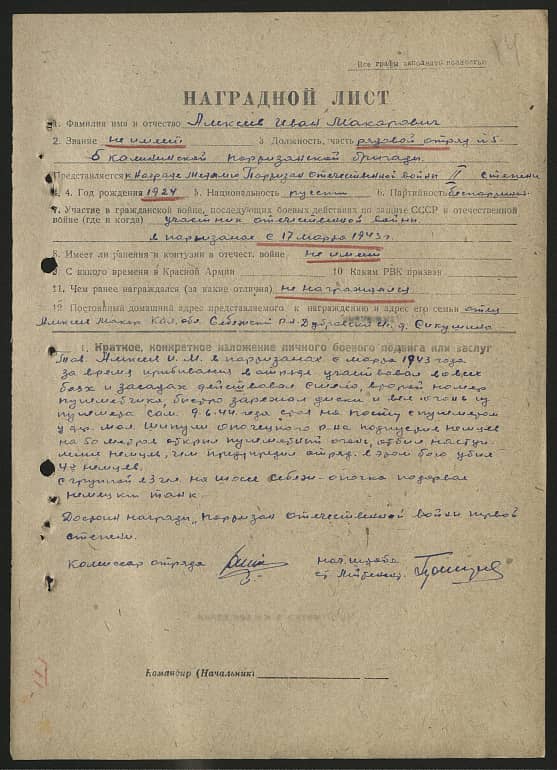 14
Все графы заполнять полностью
НАГРАДНОЙ ЛИСТ
1. Фамилия имя и отчество Алексеев Иван Макарович
2. Звание не имеет 3 Должность, часть рядовой отряд №5
5 Калининской партизанской бригады
Представляется к Награде Медалью Партизан отечественной войны II степени
4. Год рождения 1924 5. Национальность русский 6. Партийность Беспартийный
7. Участие в гражданской войне, последующих боевых действиях по защите СССР и отечественной
войне (где и когда) участник отечественной войны
в партизанах с 17 марта 1943 г.
8. Имеет ли ранения и контузии в отечест. войне не имеет
9 С какого времени в Красной Армии 10 Каким РВК призван
11. Чем ранее награждался (за какие отличия) не награждался
12 Постоянный домашний адрес представляемого к награждению и адрес его семьи отец
Алексеев Макар Кал. обл. Себежский р-н д.
1. Краткое, конкретное изложение личного боевого подвига или заслуг
Тов. Алексеев И. М. в партизанах с марта 1943 года
за время пребывания в отряде участвовал во всех
боях и засадах действовал смело, второй номер
пулеметчика, быстро заряжал диски и вел огонь из
пулемета сам. 9.6.44 года стоя на посту с пулеметом
у дер. Мал. Шипули опочецкого р-на подпустив немцев
на 50 метров открыл пулеметный огонь, отбил наступ-
ление немцев, чем предупредил отряд. в этом бою убил
4х немцев.
с группой 23 чел. на шоссе Себеж-опочка подорвал
немецкий танк.
Достоин награды "партизан отечественной войны первой
степени.
Комиссар отряда нач. штаба
ст. лейтенант
Командир (Начальник)